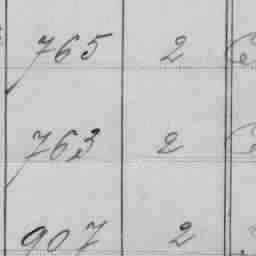 765 2
763 2
907 2